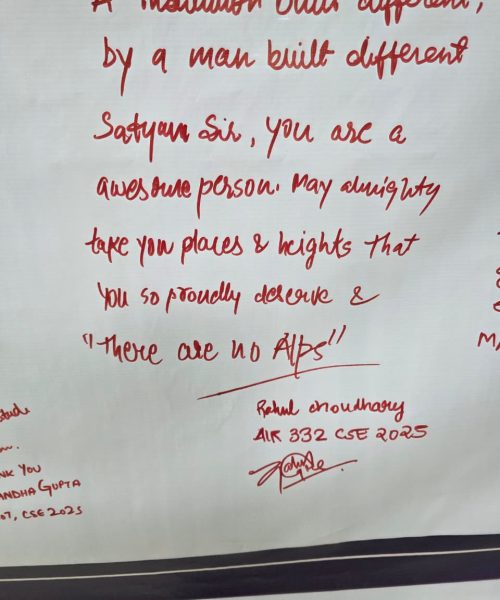 A Institution built different,
by a man built different
Satyam Sir, you are a
awesome person. May almighty
take you places & heights that
you so proudly deserve &
"There are no Alps"
Rahul choudhary
AIR 332 CSE 2025
YOU
GUPTA
CSE 2025